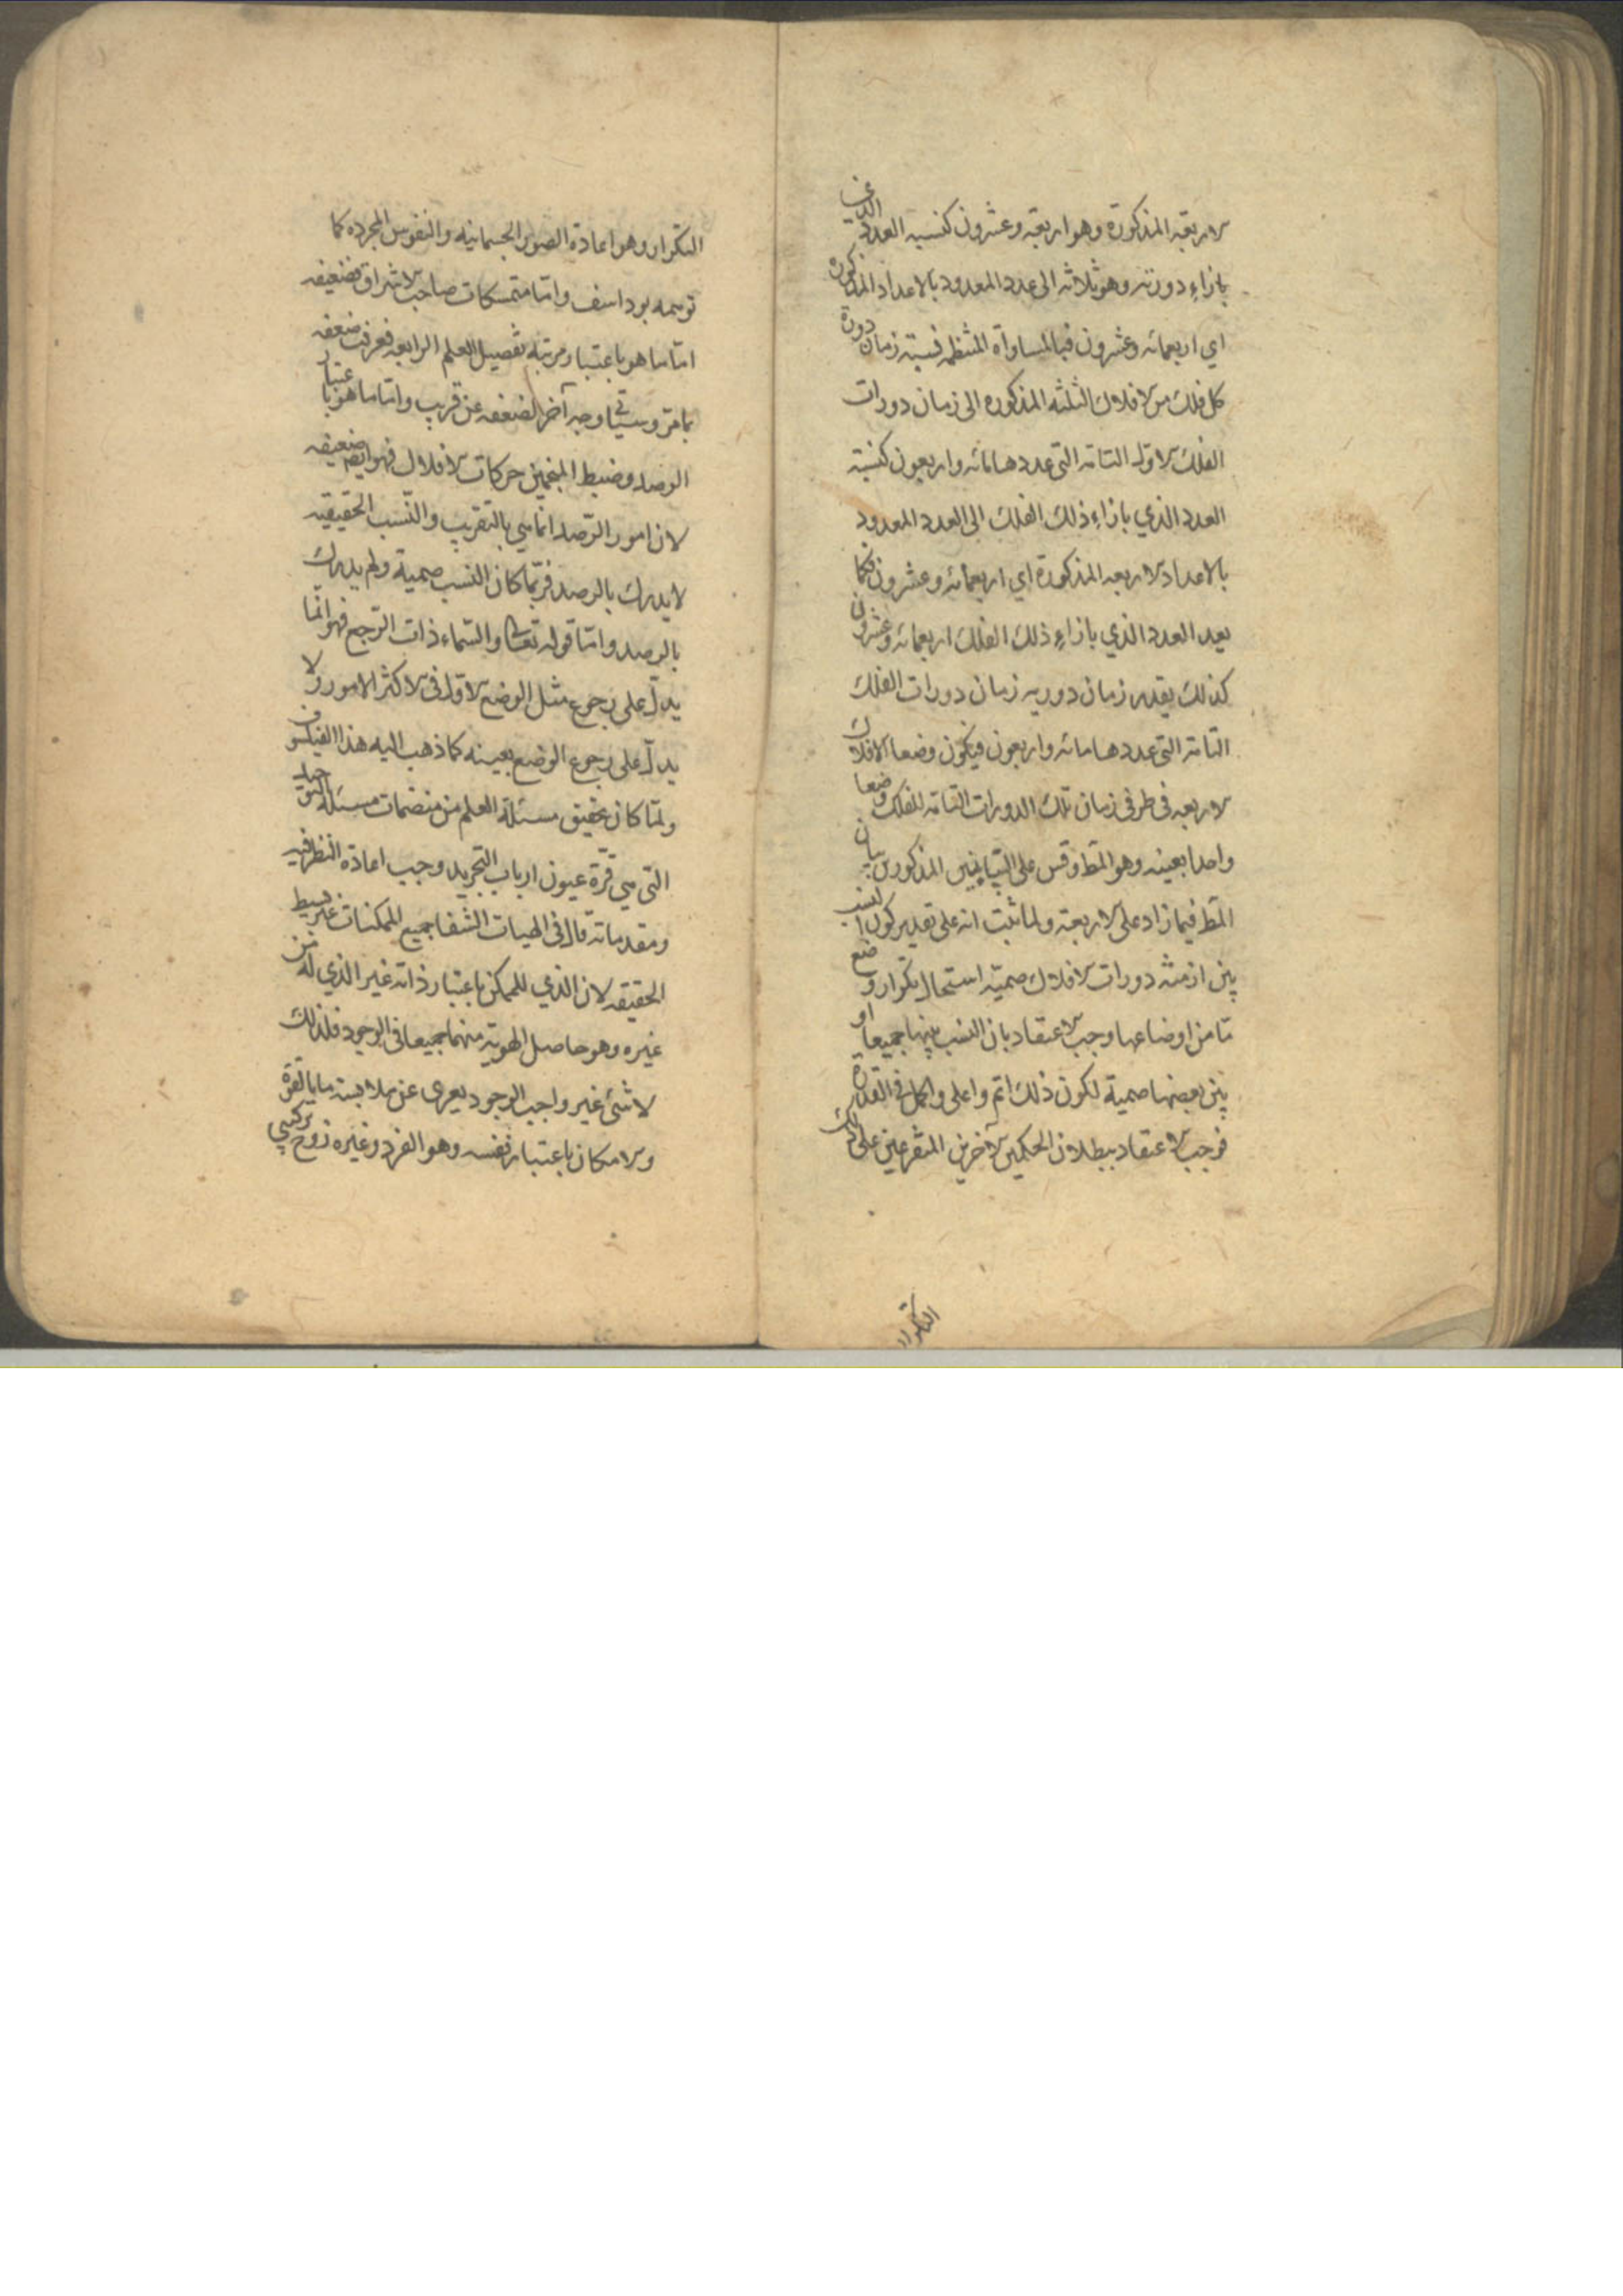 الاربعة المذكورة وهو اربعة وعشرون كنسبه العدد الذي
بازاء دورته وهو ثلاثه الى عدد المعدود بالاعداد المذكوره
اي اربعمائه وعشرون فبالمساواة المنتظمه نسبة زمان دورة
كل فلك من الافلاك الثلثه المذكوره الى زمان دورات
الفلك الاول التامه التي عددها مائه واربعون كنسبة
العدد الذي بازاء ذلك الفلك الى العدد المعدود
بالاعداد الاربعه المذكورة اي اربعمائه وعشرون فكما
يعد العدد الذي بازاء ذلك الفلك اربعمائه وعشرون
كذلك يقدر زمان دوريه زمان دورات الفلك
التامه التي عددها مائه واربعون فيكون وضعا الافلاك
الاربعه في طرفي زمان تلك الدورات التامه للفلك وضعا
واحدا بعينه وهو المط وقس على البيانين المذكورين بيان
المط فيما زاد على الاربعة ولما ثبت انه على تقدير كون النسب
بين ازمنه دورات الافلاك صميّه استحال تكرار وضع
ما من اوضاعها وجب الاعتقاد بان النسب بينها جميعا او
بين بعضها صمية لكون ذلك اتم واعلى واكمل في القدرة
فوجب الاعتقاد ببطلان الحكمين الآخرين المتفرعين على ذلك
التكرار
التكرار وهو اعادة الصور الجسمانيه والنفوس المجرده كما
توهمه بوداسف وامّا متمسكات صاحب الاشراق فضعيفه
امّا ما هو باعتبار مرتبه تفصيل العلم الرابعه فعرفت ضعفه
بما مرّ وسياتي وجه آخر لضعفه عن قريب وامّا ما هو باعتبار
الرصد وضبط المنجمين حركات الافلاك فهو ايضا ضعيفه
لان امور الرّصد انما هي بالتقريب والنّسب الحقيقيه
لا يدرك بالرصد فربّما كان النسب صمية ولم يدرك
بالرصد وامّا قوله تعالى والسّماء ذات الرّجع فهو انّما
يدلّ على رجوع مثل الوضع الاوّل في الاكثر الامور ولا
يدلّ على رجوع الوضع بعينه كما ذهب اليه هذا الفيلسوف
ولمّا كان تحقيق مسئلة العلم من متضمنات مسئلة التوحيد
التي هي قرّة عيون ارباب التجريد وجب اعادة النظر فيه
ومقدماته قال في الهيات الشفا جميع الممكنات غير بسيط
الحقيقه لان الذي للممكن باعتبار ذاته غير الذي له من
غيره وهو حاصل الهوية منهما جميعا في الوجود فلذلك
لا شئ غير واجب الوجود يعرى عن ملابسة ما بالقوة
والامكان باعتبار نفسه وهو الفرد وغيره زوج تركيبي